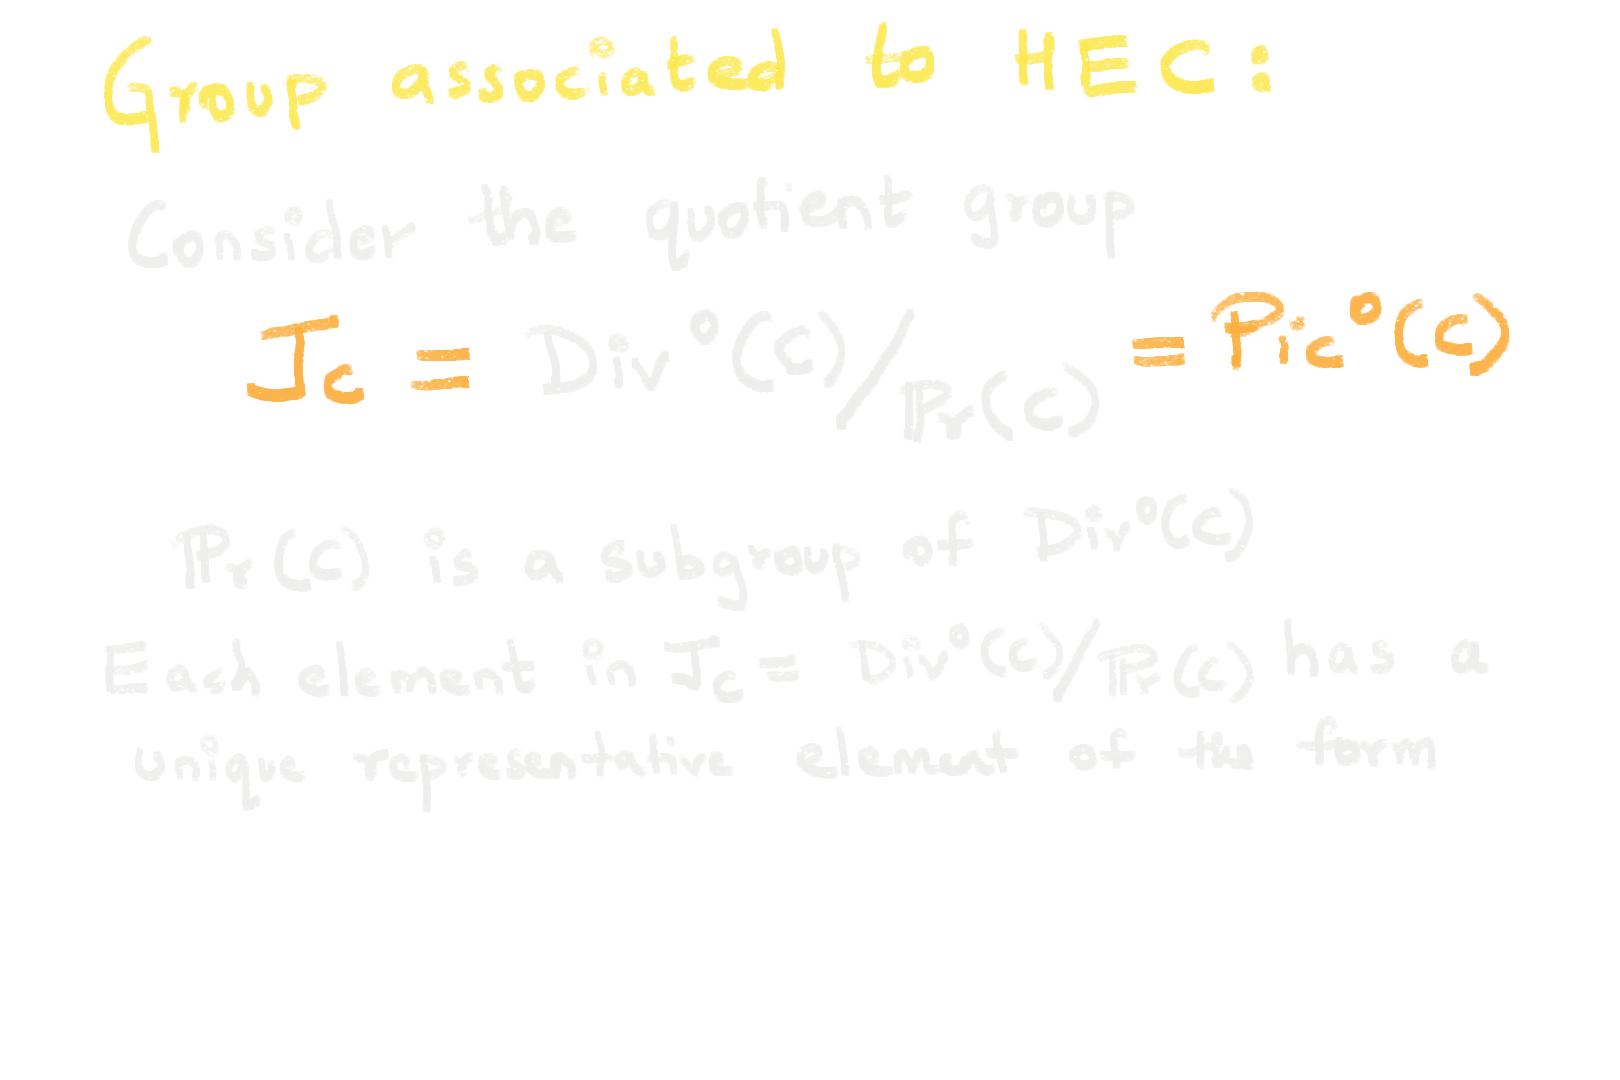 Group associated to HEC:
Consider the quotient group
J_C = Div⁰(C)/ℙr(C) = Pic⁰(C)
ℙr(C) is a subgroup of Div⁰(C)
Each element in J_C = Div⁰(C)/ℙr(C) has a
unique representative element of the form